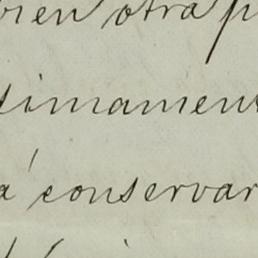 bien otra p
timamen
á conservar